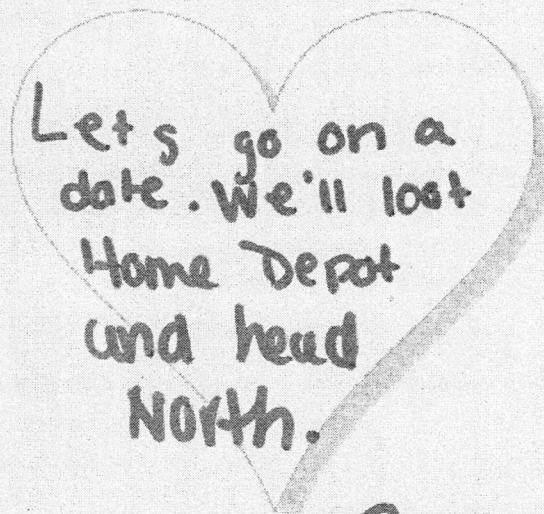 Lets go on a
date. We'll loot
Home Depot
and head
North.